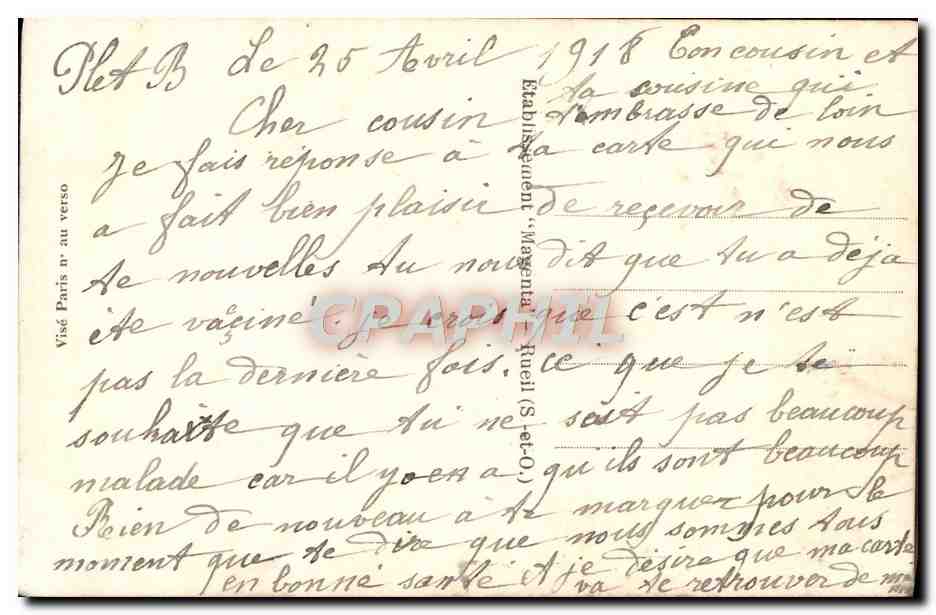 Plet B le 25 Avril 1918 Ton cousin et
ta cousine qui
t'embrasse de loin
Cher cousin
Je fais réponse à ta carte qui nous
a fait bien plaisir de reçevoir de
te nouvelles tu nous dit que tu a déja
éte vaçiné. je crois que c'est n'est
pas la dernière fois. ce que je te
souhaite que tu ne soit pas beaucoup
malade car il y en a qu'ils sont beaucoup
Rien de nouveau à te marquer pour le
moment que te dire que nous sommes tous
en bonne santé et je désire que ma carte
va te retrouver de
Visé Paris nº au verso
Etablissement "Magenta" - Rueil (S.-et-O.)
CPAPHIL